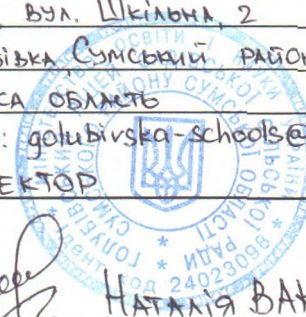 вул. Шкільна, 2
івка Сумський район
ка область
: golubivska-schools@
ектор
Наталія Вак
24023098